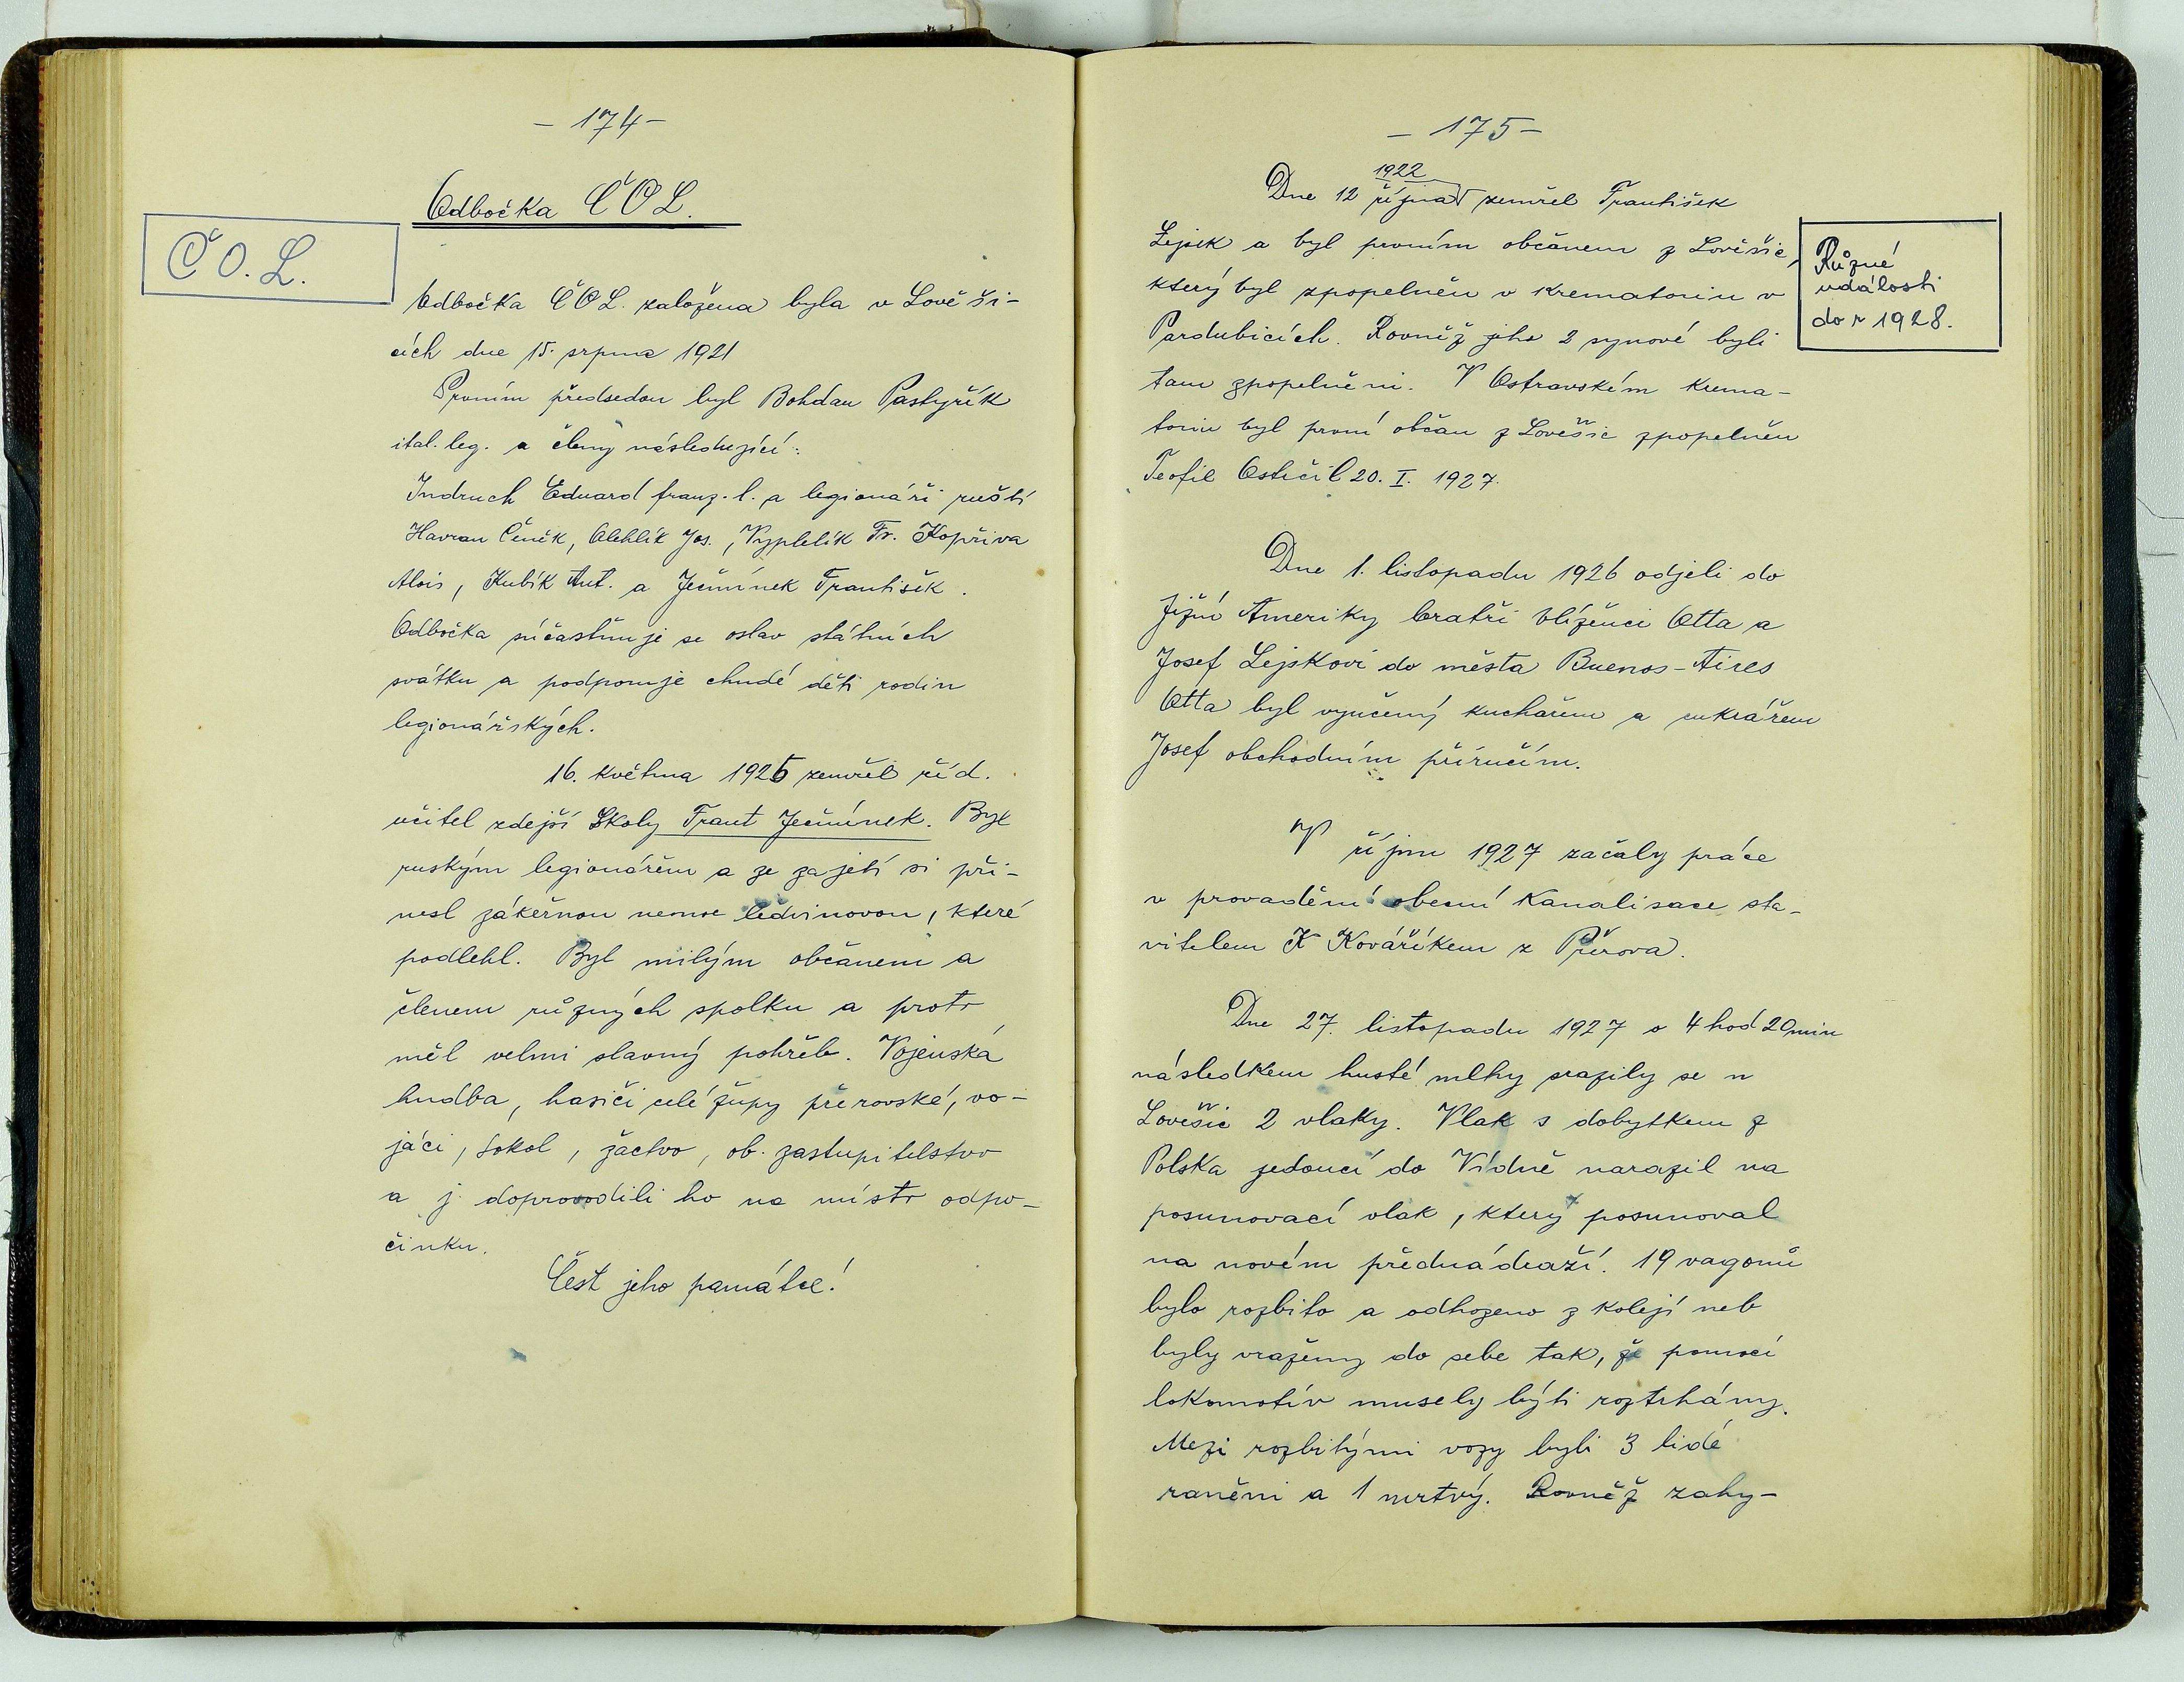 - 174 -
Odbočka ČOL.
Č O. L.
Odbočka ČOL. založena byla v Lověši-
cích dne 15. srpna 1921
Prvním předsedou byl Bohdan Pastyřík
ital. leg. a členy následující:
Indruch Eduard franz. l. a legionáři ruští
Havran Čeněk, Olehlík Jos., Vyplelík Fr. Kopřiva
Alois, Kubík Ant. a Ječmínek František.
Odbočka súčastňuje se oslav státních
svátku a podporuje chudé děti rodin
legionářských.
16. května 1925 zemřel říd.
učitel zdejší školy Frant Ječmínek. Byl
ruským legionářem a ze zajetí si při-
nesl zákeřnou nemoc ledvinovou, které
podlehl. Byl milým občanem a
členem různých spolku a proto
měl velmi slavný pohřeb. Vojenská
hudba, hasiči celé župy přerovské, vo-
jáci, Sokol, žactvo, ob. zastupitelstvo
a j. doprovodili ho na místo odpo-
činku.
Čest jeho památce!
- 175 -
1922
Dne 12 října zemřel František
Lejsek a byl prvním občanem z Lověšic,
který byl zpopelněn v krematoriu v
Pardubicích. Rovněž jeho 2 synové byli
tam zpopelněni. V Ostravském krema-
toriu byl první občan z Lověšic zpopelněn
Teofil Ostrčil 20. I. 1927.
Různé
události
do r 1928.
Dne 1. listopadu 1926 odjeli do
Jižní Ameriky bratři blíženci Otta a
Josef Lejskovi do města Buenos-Aires
Otta byl vyučený kuchařem a cukrářem
Josef obchodním příručím.
V říjnu 1927 začaly práce
v provadění obecní kanalisace sta-
vitelem K Kováříkem z Přerova.
Dne 27. listopadu 1927 o 4 hod 20 min
následkem husté mlhy srazily se u
Lověšic 2 vlaky. Vlak s dobytkem z
Polska jedoucí do Vídně narazil na
posunovací vlak, který posunoval
na novém přednádraží. 19 vagonů
bylo rozbito a odhozeno z kolejí neb
byly vraženy do sebe tak, že pomocí
lokomotiv musely býti roztrhány.
Mezi rozbitými vozy byli 3 lidé
raněni a 1 mrtvý. Rovněž zahy-